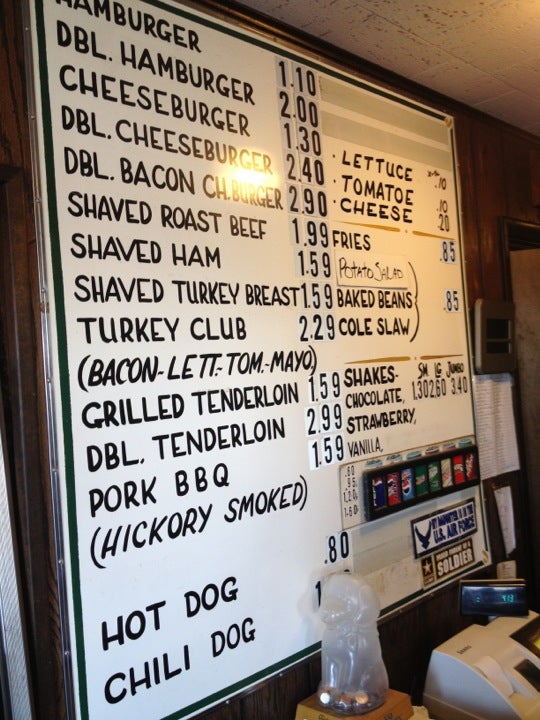 HAMBURGER 1.10
DBL. HAMBURGER 2.00
CHEESEBURGER 1.30
DBL. CHEESEBURGER 2.40
DBL. BACON CH. BURGER 2.90
SHAVED ROAST BEEF 1.99
SHAVED HAM 1.59
SHAVED TURKEY BREAST 1.59
TURKEY CLUB 2.29
(BACON-LETT.-TOM.-MAYO)
GRILLED TENDERLOIN 1.59
DBL. TENDERLOIN 2.99
PORK BBQ 1.59
(HICKORY SMOKED)
HOT DOG .80
CHILI DOG
· LETTUCE .10
· TOMATOE .10
· CHEESE .20
FRIES .85
POTATO SALAD
BAKED BEANS .85
COLE SLAW
SHAKES- SM LG JUMBO
CHOCOLATE, 1.30 2.60 3.40
STRAWBERRY,
VANILLA,
.60
.95
1.20
1.60
U.S. AIR FORCE
SOLDIER